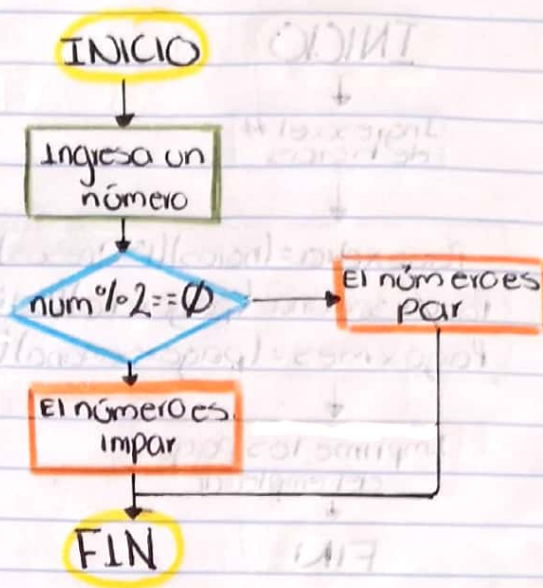 INICIO
Ingresa un
número
num%2==0
El número es
par
El número es.
impar
FIN